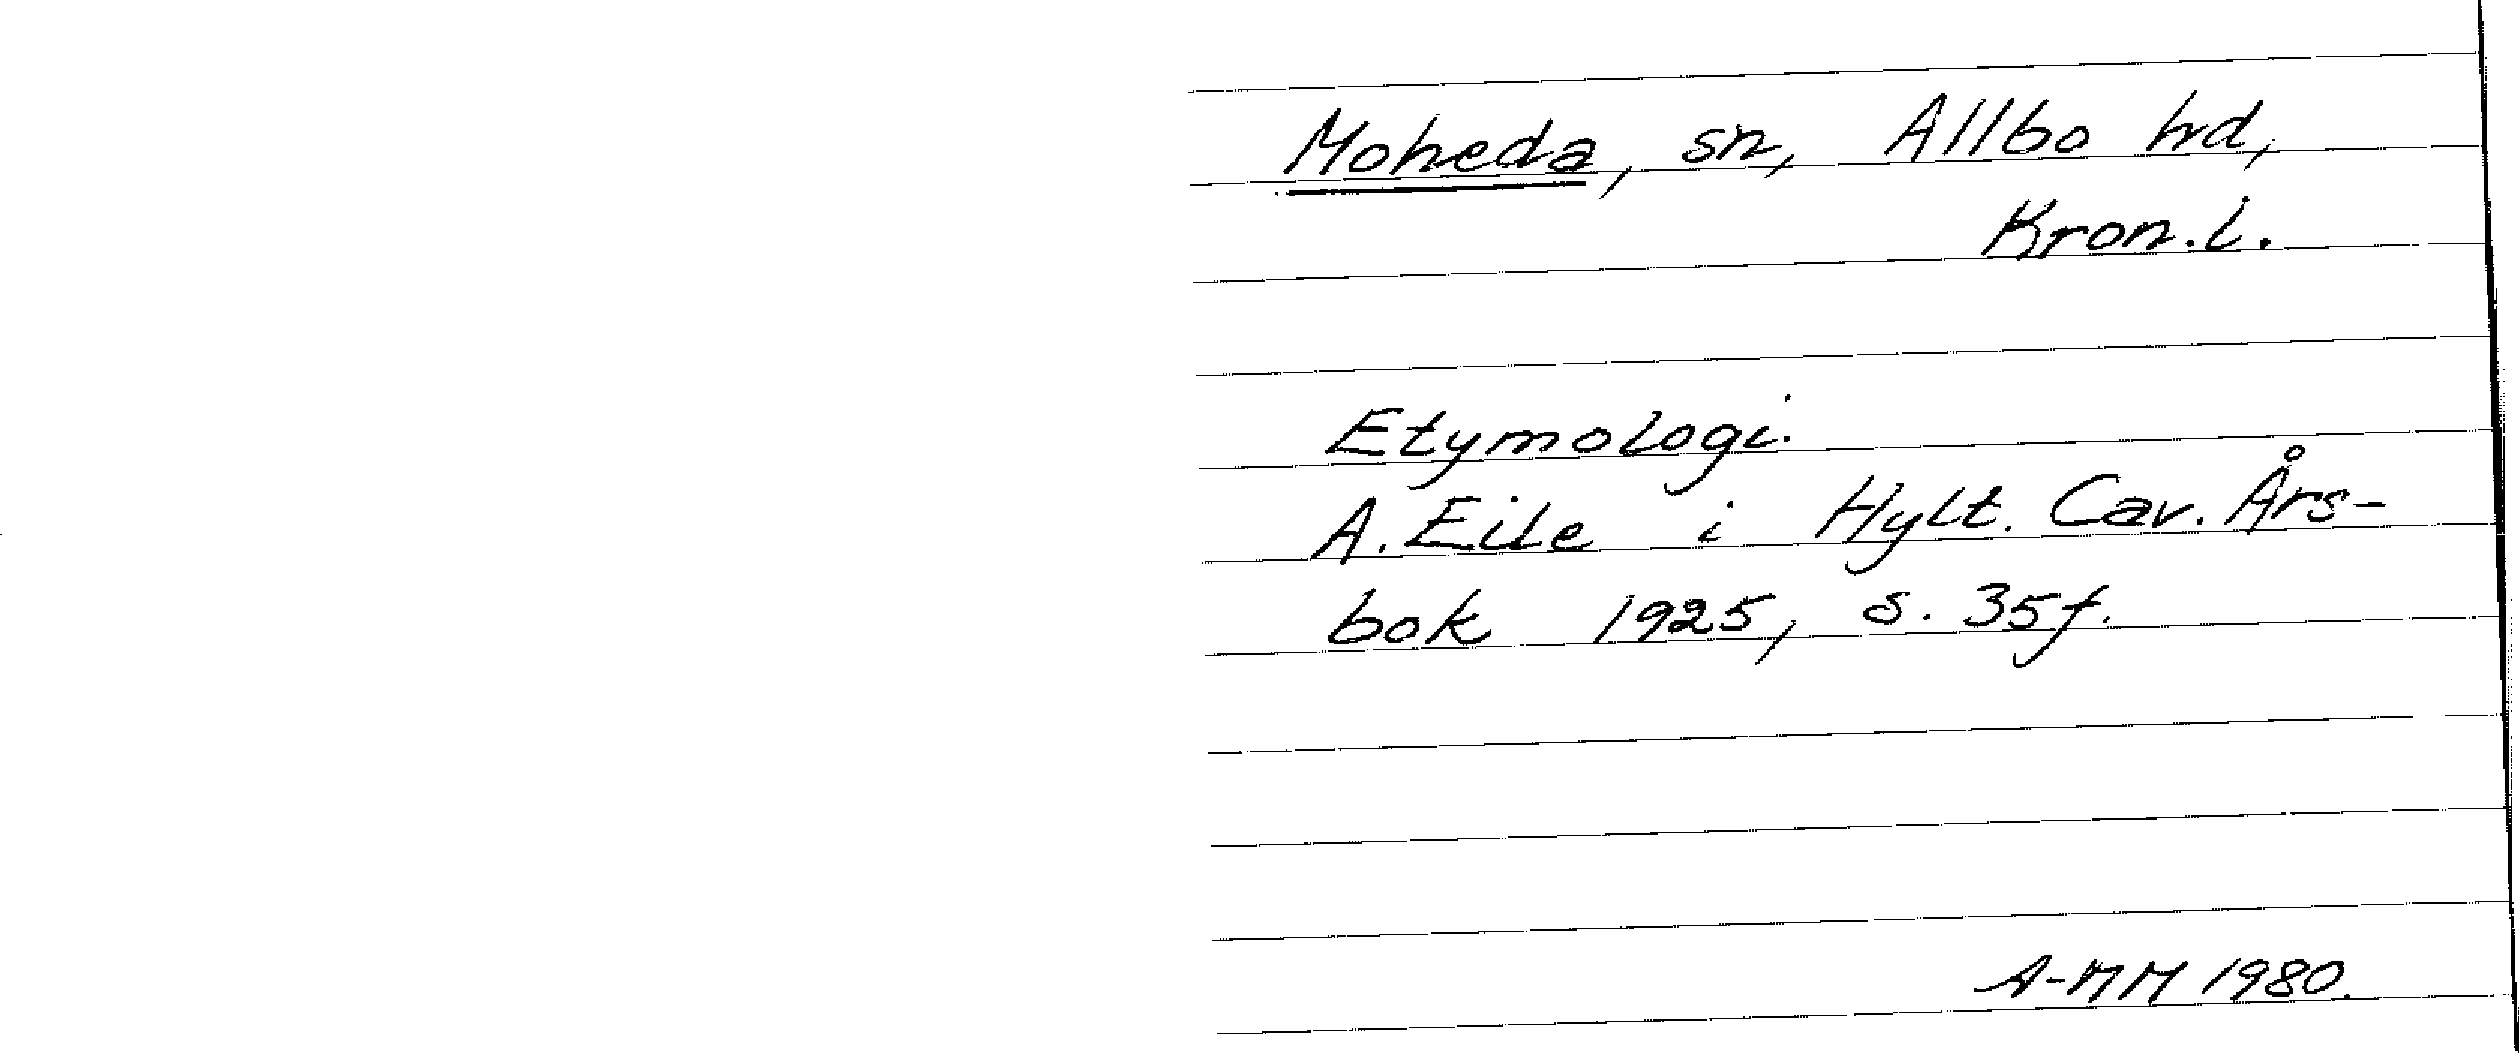 Moheda, sn, Allbo hd,
Kron.l.
Etymologi.
A. Eile i Hylt. Cav. Års-
bok 1925, s. 35f.
A-MM 1980.